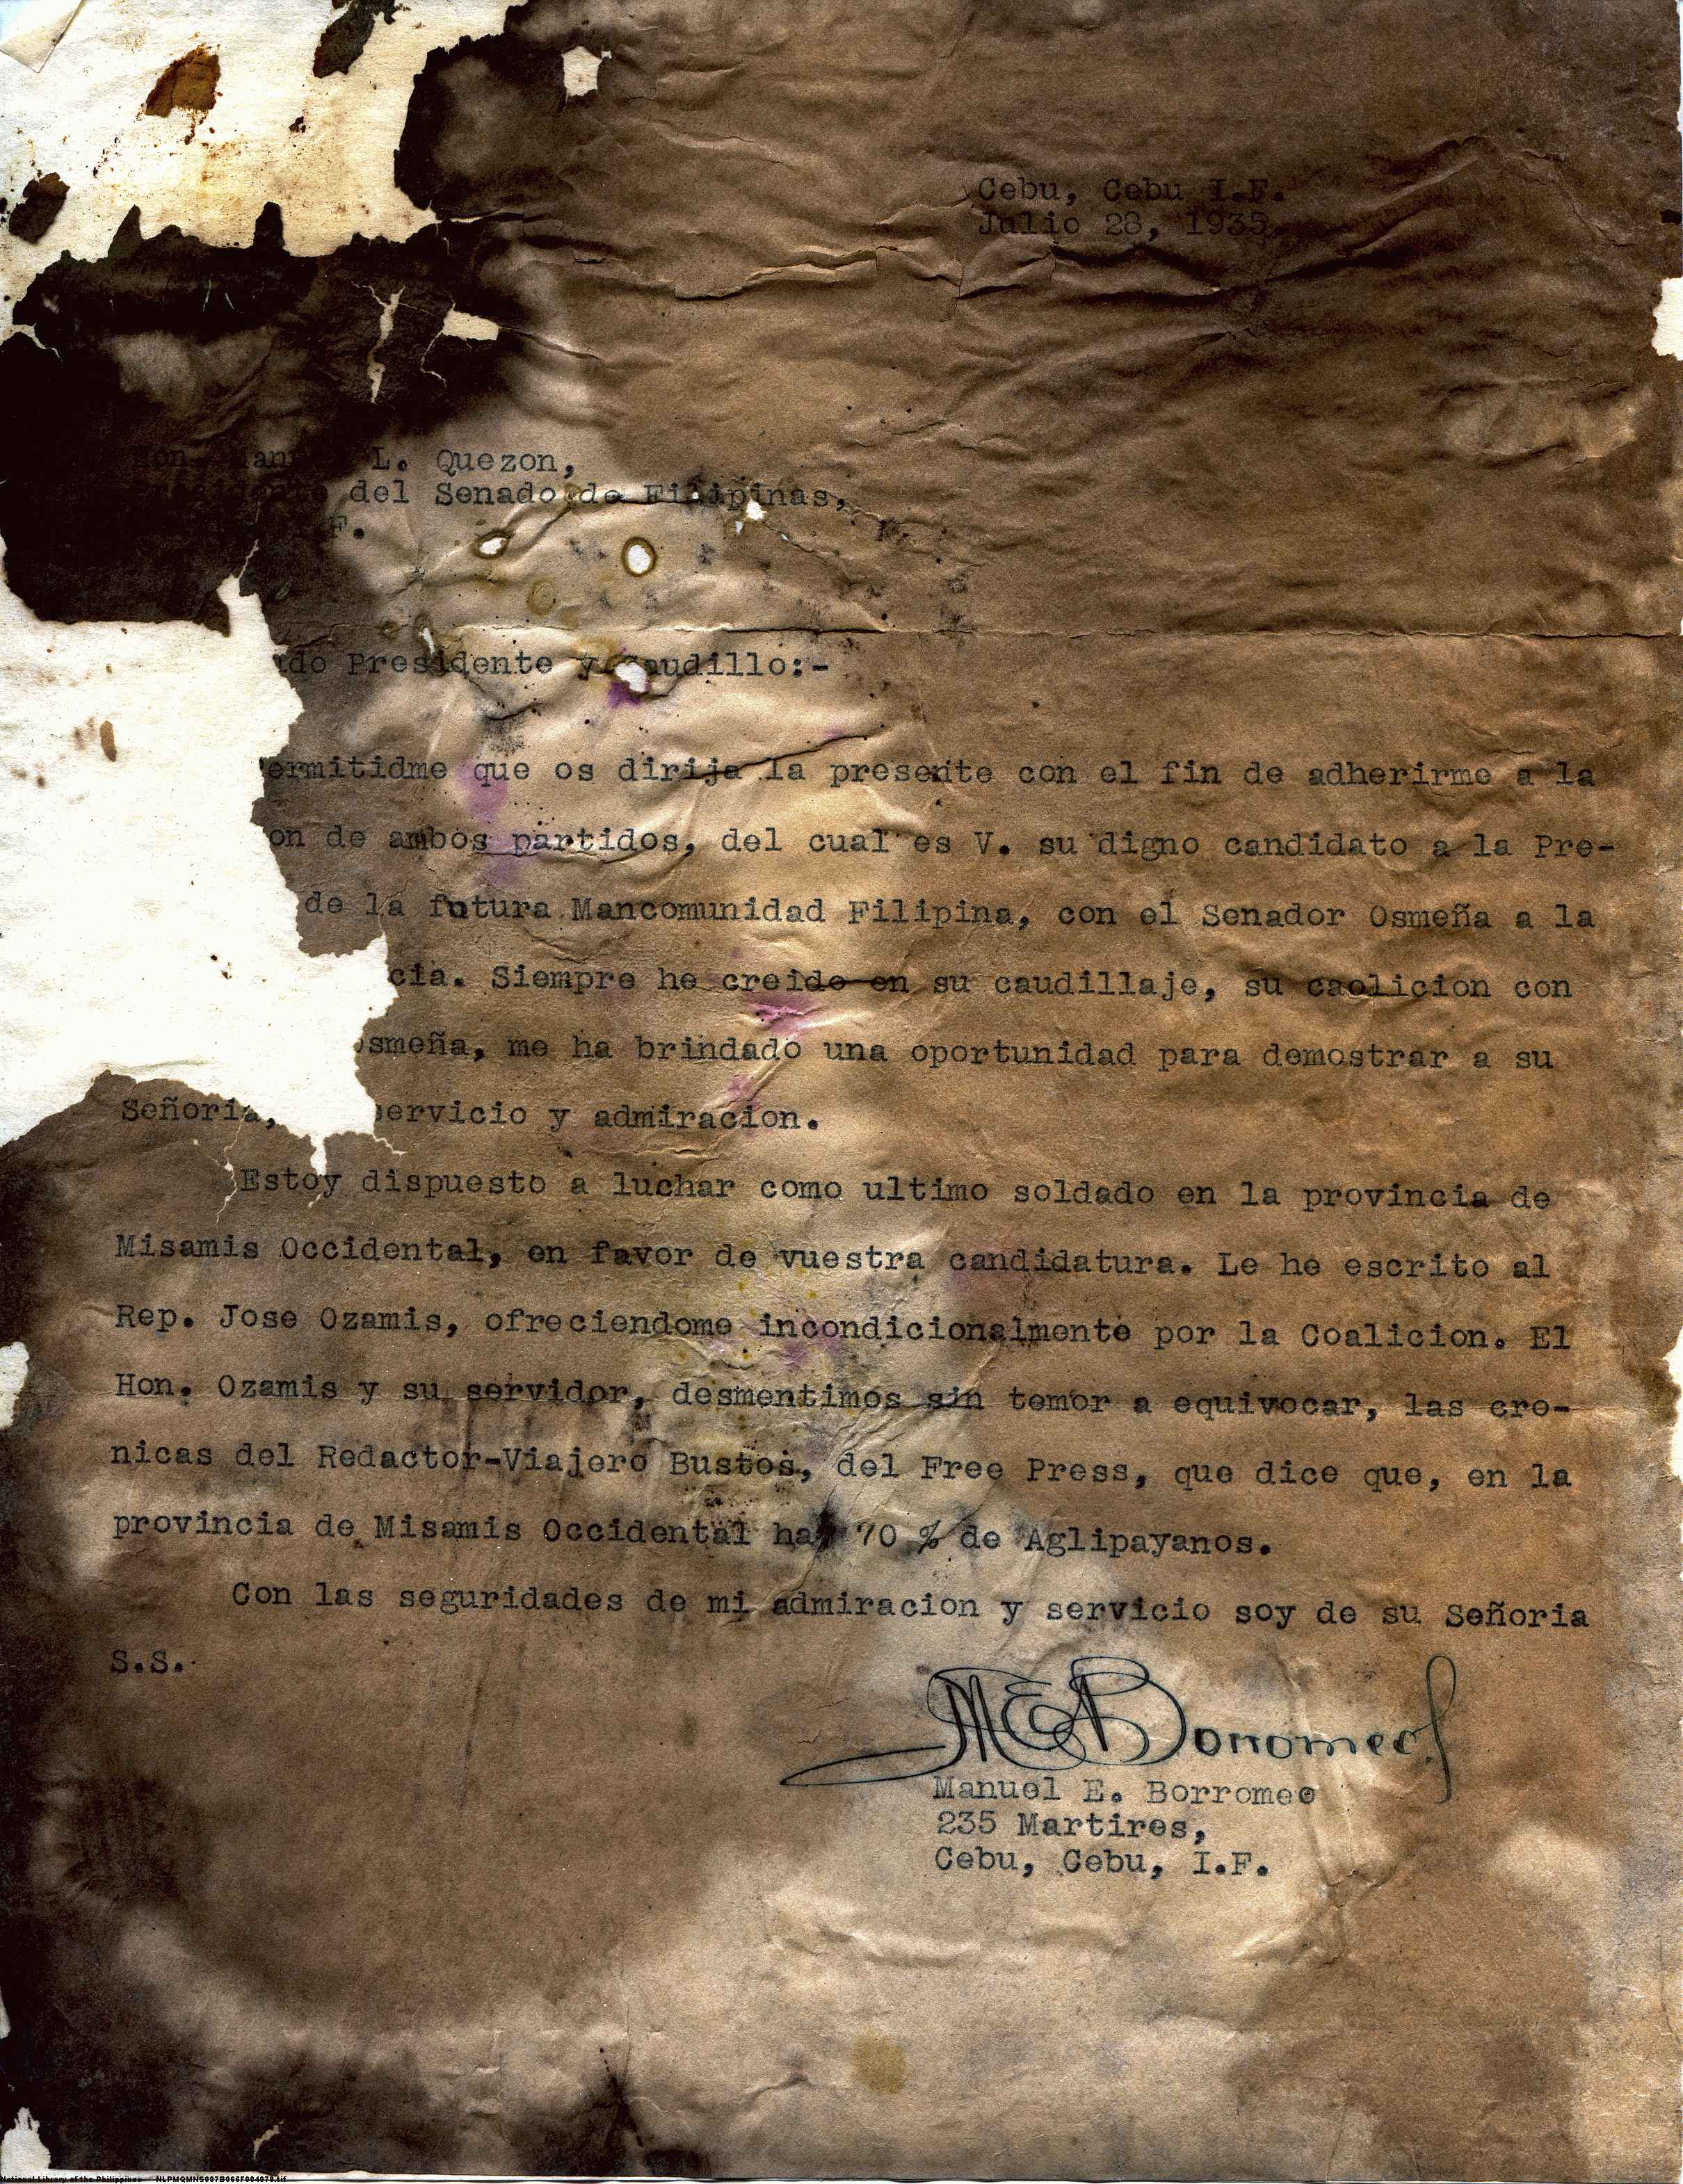 Cebu, Cebu I.F.
Julio 28, 1935.
Hon. Manuel L. Quezon,
del Senado de Filipinas,
F.
Presidente y Caudillo:-
ermitidme que os dirija la presente con el fin de adherirme a la
on de ambos partidos, del cual es V. su digno candidato a la Pre-
de la futura Mancomunidad Filipina, con el Senador Osmeña a la
cia. Siempre he creido en su caudillaje, su caolicion con
smeña, me ha brindado una oportunidad para demostrar a su
Señoria, servicio y admiracion.
Estoy dispuesto a luchar como ultimo soldado en la provincia de
Misamis Occidental, en favor de vuestra candidatura. Le he escrito al
Rep. Jose Ozamis, ofreciendome incondicionalmente por la Coalicion. El
Hon. Ozamis y su servidor, desmentimos sin temor a equivocar, las cro-
nicas del Redactor-Viajero Bustos, del Free Press, que dice que, en la
provincia de Misamis Occidental hay 70 % de Aglipayanos.
Con las seguridades de mi admiracion y servicio soy de su Señoria
S.S.
M E Borromeo
Manuel E. Borromeo
235 Martires,
Cebu, Cebu, I.F.
National Library of the Philippines